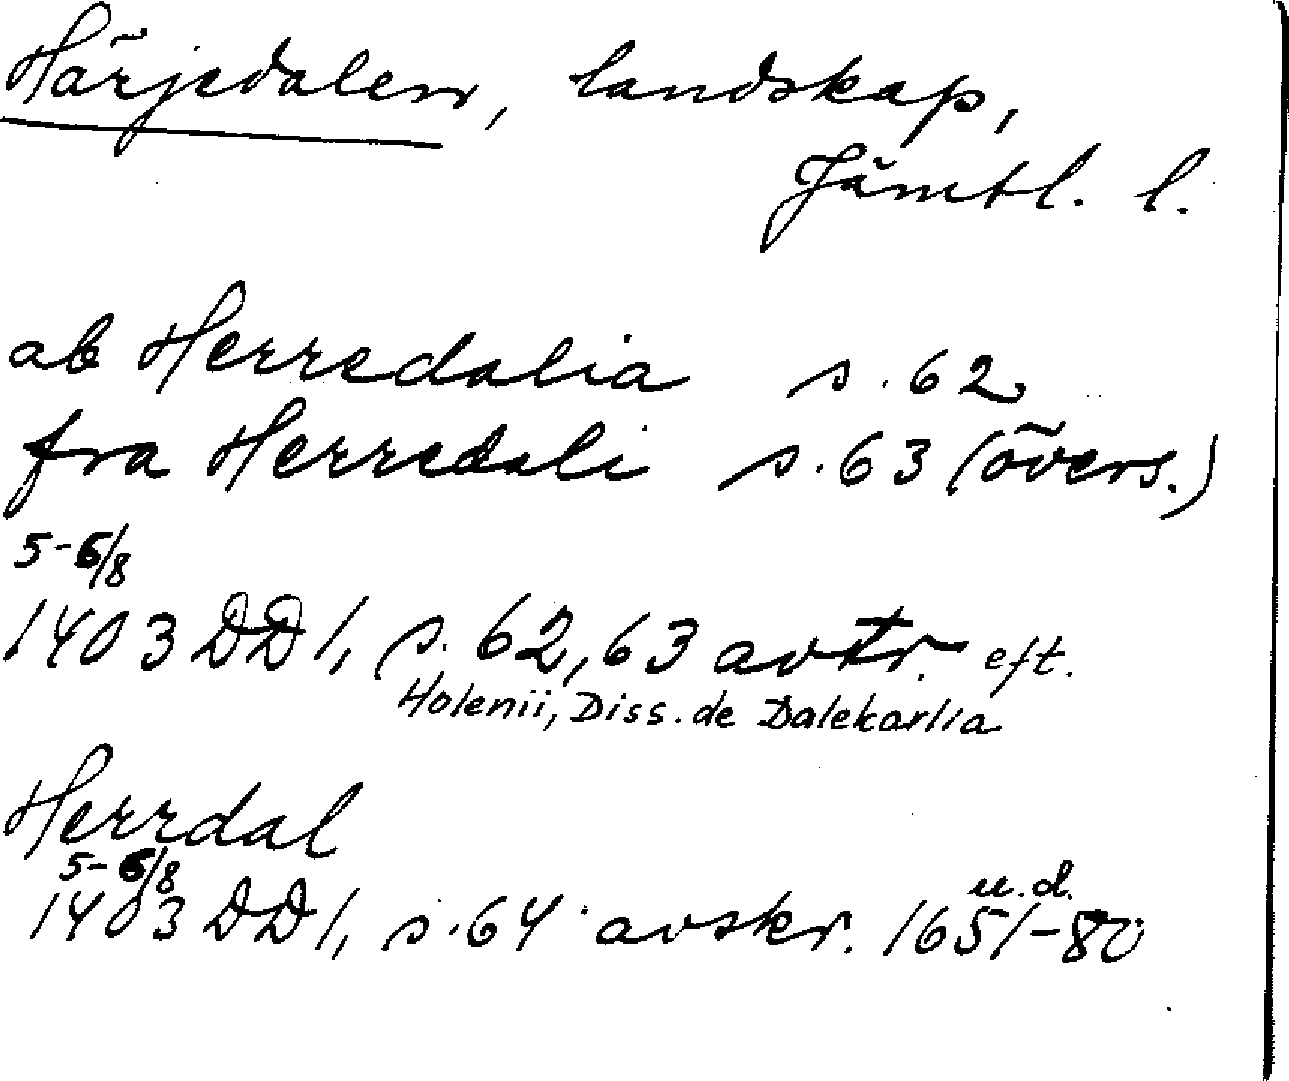 Härjedalen, landskap,
Jämtl. l.
ab Herredalia s. 62
fra Herredali s. 63 (övers.)
5-6/8
1403 DD 1, s. 62, 63 avtr. eft.
Holenii, Diss. de Dalekarlia
Herrdal
5-6/8
u.d.
1403 DD 1, s. 64 avskr. 1651-80